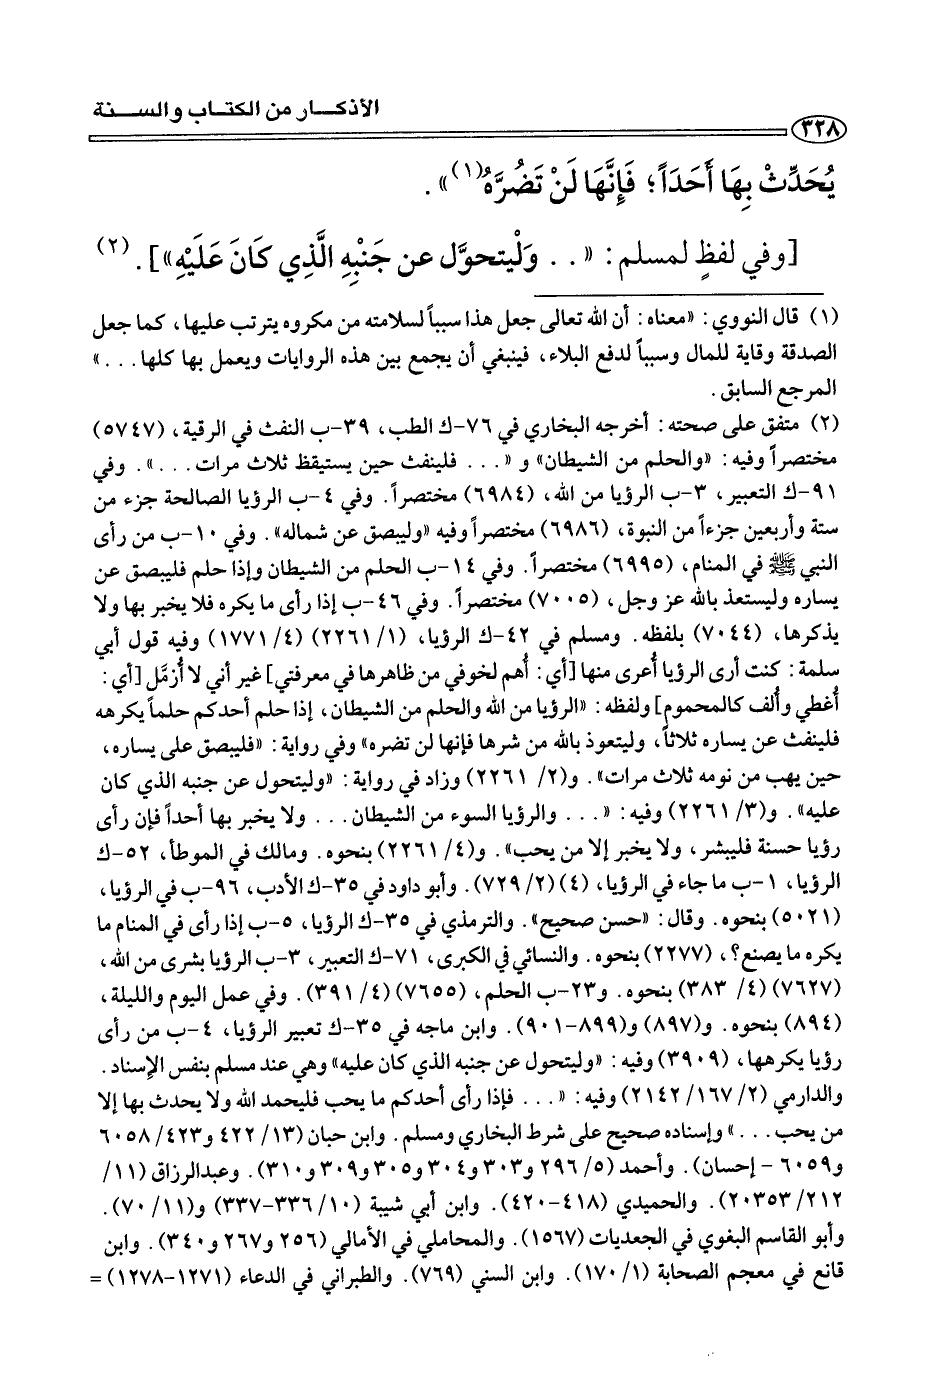 الأذكـــار من الكتـاب والســـنة
٣٢٨
يُحَدِّثْ بِهَا أَحَدَاً؛ فَإِنَّهَا لَنْ تَضُرَّهُ(١)».
[وفي لفظٍ لمسلم: «. . وَلْيتحوَّل عن جَنْبِهِ الَّذِي كَانَ عَلَيْهِ»]. (٢)
(١) قال النووي: «معناه: أن الله تعالى جعل هذا سبباً لسلامته من مكروه يترتب عليها، كما جعل
الصدقة وقاية للمال وسبباً لدفع البلاء، فينبغي أن يجمع بين هذه الروايات ويعمل بها كلها. . .»
المرجع السابق.
(٢) متفق على صحته: أخرجه البخاري في ٧٦-ك الطب، ٣٩-ب النفث في الرقية، (٥٧٤٧)
مختصراً وفيه: «والحلم من الشيطان» و «. . . فلينفث حين يستيقظ ثلاث مرات. . .». وفي
٩١-ك التعبير، ٣-ب الرؤيا من الله، (٦٩٨٤) مختصراً. وفي ٤-ب الرؤيا الصالحة جزء من
ستة وأربعين جزءاً من النبوة، (٦٩٨٦) مختصراً وفيه «وليبصق عن شماله». وفي ١٠-ب من رأى
النبي ﷺ في المنام، (٦٩٩٥) مختصراً. وفي ١٤-ب الحلم من الشيطان وإذا حلم فليبصق عن
يساره وليستعذ بالله عز وجل، (٧٠٠٥) مختصراً. وفي ٤٦-ب إذا رأى ما يكره فلا يخبر بها ولا
يذكرها، (٧٠٤٤) بلفظه. ومسلم في ٤٢-ك الرؤيا، (١/ ٢٢٦١) (٤/ ١٧٧١) وفيه قول أبي
سلمة: كنت أرى الرؤيا أُعرى منها [أي: أُهم لخوفي من ظاهرها في معرفتي] غير أني لا أُزمَّل [أي:
أُغطي وأُلف كالمحموم] ولفظه: «الرؤيا من الله والحلم من الشيطان، إذا حلم أحدكم حلماً يكرهه
فلينفث عن يساره ثلاثاً، وليتعوذ بالله من شرها فإنها لن تضره» وفي رواية: «فليبصق على يساره،
حين يهب من نومه ثلاث مرات». و(٢/ ٢٢٦١) وزاد في رواية: «وليتحول عن جنبه الذي كان
عليه». و(٣/ ٢٢٦١) وفيه: «. . . والرؤيا السوء من الشيطان. . . ولا يخبر بها أحداً فإن رأى
رؤيا حسنة فليبشر، ولا يخبر إلا من يحب». و(٤/ ٢٢٦١) بنحوه. ومالك في الموطأ، ٥٢-ك
الرؤيا، ١-ب ما جاء في الرؤيا، (٤) (٢/ ٧٢٩). وأبو داود في ٣٥-ك الأدب، ٩٦-ب في الرؤيا،
(٥٠٢١) بنحوه. وقال: «حسن صحيح». والترمذي في ٣٥-ك الرؤيا، ٥-ب إذا رأى في المنام ما
يكره ما يصنع؟، (٢٢٧٧) بنحوه. والنسائي في الكبرى، ٧١-ك التعبير، ٣-ب الرؤيا بشرى من الله،
(٧٦٢٧) (٤/ ٣٨٣) بنحوه. و٢٣-ب الحلم، (٧٦٥٥) (٤/ ٣٩١). وفي عمل اليوم والليلة،
(٨٩٤) بنحوه. و(٨٩٧) و(٨٩٩-٩٠١). وابن ماجه في ٣٥-ك تعبير الرؤيا، ٤-ب من رأى
رؤيا يكرهها، (٣٩٠٩) وفيه: «وليتحول عن جنبه الذي كان عليه» وهي عند مسلم بنفس الإسناد.
والدارمي (٢/ ١٦٧/ ٢١٤٢) وفيه: «. . . فإذا رأى أحدكم ما يحب فليحمد الله ولا يحدث بها إلا
من يحب. . .» وإسناده صحيح على شرط البخاري ومسلم. وابن حبان (١٣/ ٤٢٢ و٤٢٣/ ٦٠٥٨
و٦٠٥٩ - إحسان). وأحمد (٥/ ٢٩٦ و٣٠٣ و٣٠٤ و٣٠٥ و٣٠٩ و٣١٠). وعبدالرزاق (١١/
٢١٢/ ٢٠٣٥٣). والحميدي (٤١٨-٤٢٠). وابن أبي شيبة (١٠/ ٣٣٦-٣٣٧) و(١١/ ٧٠).
وأبو القاسم البغوي في الجعديات (١٥٦٧). والمحاملي في الأمالي (٢٥٦ و٢٦٧ و٣٤٠). وابن
قانع في معجم الصحابة (١/ ١٧٠). وابن السني (٧٦٩). والطبراني في الدعاء (١٢٧١-١٢٧٨) =